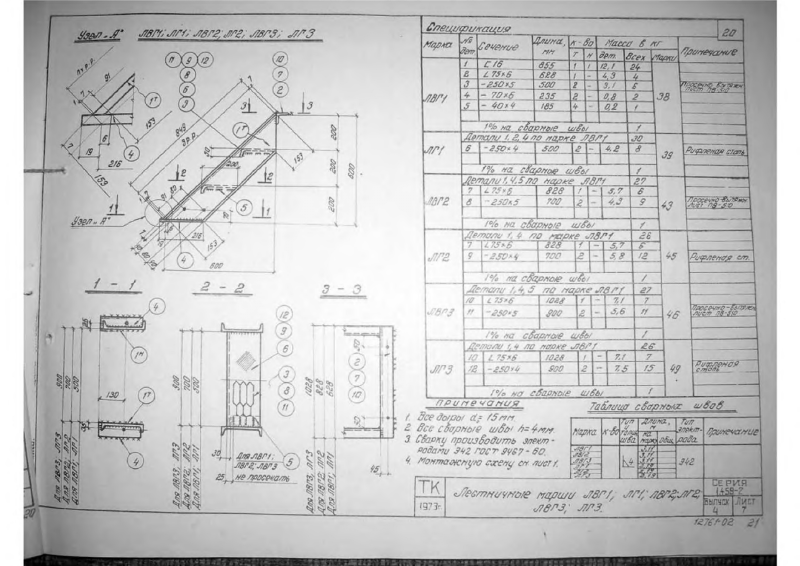 Узел „А"
ЛВГ1; ЛГ1; ЛВГ2; ЛГ2; ЛВГ3; ЛГ3
11 9 12
8
6
3
10
7
2
3 3
1Г
4
159
216
19
6
91
200
200
200
600
600
216
153
2 2
1 1
5
4
Узел „А"
1 - 1
2 - 2
3 - 3
4
1Н
130
1Г
4
900
700
500
Для ЛВГ3, ЛГ3
Для ЛВГ2, ЛГ2
Для ЛВГ1, ЛГ1
12
9
6
3
8
11
5
30
25
Для ЛВГ1;
ЛВГ2; ЛВГ3
не просекать
1028
828
628
2
7
10
45
Для ЛВГ3, ЛГ3
Для ЛВГ2, ЛГ2
Для ЛВГ1, ЛГ1
Спецификация 20
Марка № дет Сечение Длина, мм к-во Масса в кг Примечание
т н дет. Всех Марки
ЛВГ1 38
1 С16 855 1 1 12,1 24
2 L75×6 628 1 - 4,3 4
3 -250×5 500 2 - 3,1 6
4 -70×6 235 2 - 0,8 2
5 -40×4 185 4 - 0,2 1
1% на сварные швы 1
ЛГ1 39
Детали 1,2,4 по марке ЛВГ1 30
6 -250×4 500 2 - 4,2 8 Рифленая сталь
1% на сварные швы 1
ЛВГ2 43
Детали 1,4,5 по марке ЛВГ1 27
7 L75×6 828 1 - 5,7 6
8 -250×5 700 2 - 4,3 9
1% на сварные швы 1
ЛГ2 45
Детали 1,4 по марке ЛВГ1 26
7 L75×6 828 1 - 5,7 6
9 -250×4 700 2 - 5,8 12 Рифленая ст.
1% на сварные швы 1
ЛВГ3 46
Детали 1,4,5 по марке ЛВГ1 27
10 L75×6 1028 1 - 7,1 7
11 -250×5 900 2 - 5,6 11
1% на сварные швы 1
ЛГ3 49
Детали 1,4 по марке ЛВГ1 26
10 L75×6 1028 1 - 7,1 7
12 -250×4 900 2 - 7,5 15 Рифленая сталь
1% на сварные швы 1
Примечания
1. Все дыры d=15мм.
2. Все сварные швы h=4мм.
3. Сварку производить элект-
родами Э42 ГОСТ 9467-60.
4. Монтажную схему см лист 1.
Таблица сварных швов
Марка к-во Тип и толщ. шва Длина, м на марку общ. Тип элект-рода. Примечание
Э42
ТК
1973г.
Лестничные марши ЛВГ1; ЛГ1; ЛВГ2; ЛГ2,
ЛВГ3; ЛГ3.
СЕРИЯ
1.459-2
Выпуск Лист
4 7
12761-02 21